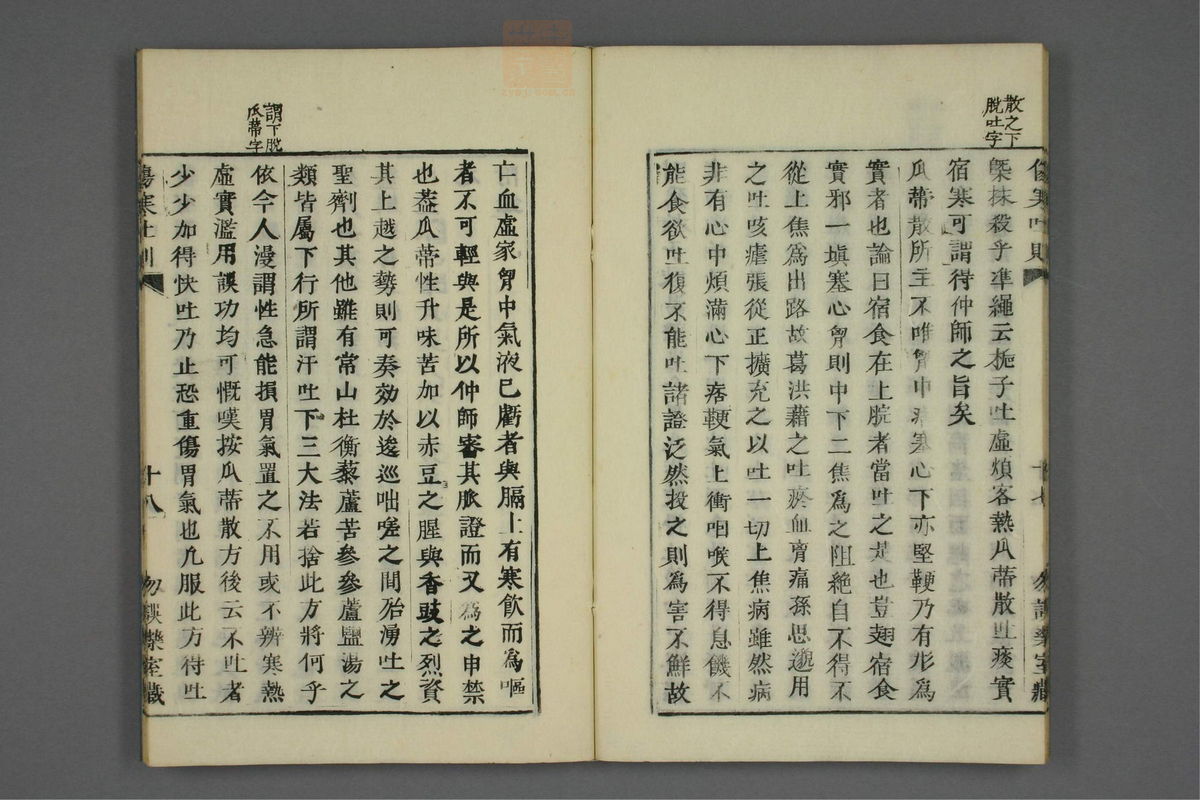 散之下
脫吐字
傷寒吐則
十七
勿誤藥室藏
槩抹殺乎準繩云梔子吐虛煩客熱瓜蒂散吐痰實
宿寒可謂待仲師之旨矣
瓜蒂散所主不唯胷中痞塞心下亦堅鞕乃有形爲
實者也論曰宿食在上脘者當吐之是也豈翅宿食
實邪一塡塞心胷則中下二焦爲之阻絶自不得不
從上焦爲出路故葛洪藉之吐瘀血胷痛孫思邈用
之吐咳瘧張從正擴充之以吐一切上焦病雖然病
非有心中煩滿心下痞鞕氣上衝咽喉不得息饑不
能食欲吐復不能吐諸證泛然投之則爲害不鮮故
謂下脫
瓜蒂字
亡血虛家胷中氣液已虧者與膈上有寒飮而爲嘔
者不可輕與是所以仲師審其脈證而又爲之申禁
也蓋瓜蒂性升味苦加以赤豆之腥與香豉之烈資
其上越之勢則可奏効於逡巡咄嗟之間殆湧吐之
聖劑也其他雖有常山杜衡藜蘆苦參參蘆鹽湯之
類皆屬下行所謂汗吐下三大法若捨此方將何乎
依今人漫謂性急能損胃氣置之不用或不辨寒熱
虛實濫用誤功均可慨嘆按瓜蒂散方後云不吐者
少少加得快吐乃止恐重傷胃氣也凡服此方得吐
傷寒吐則
十八
勿誤藥室藏